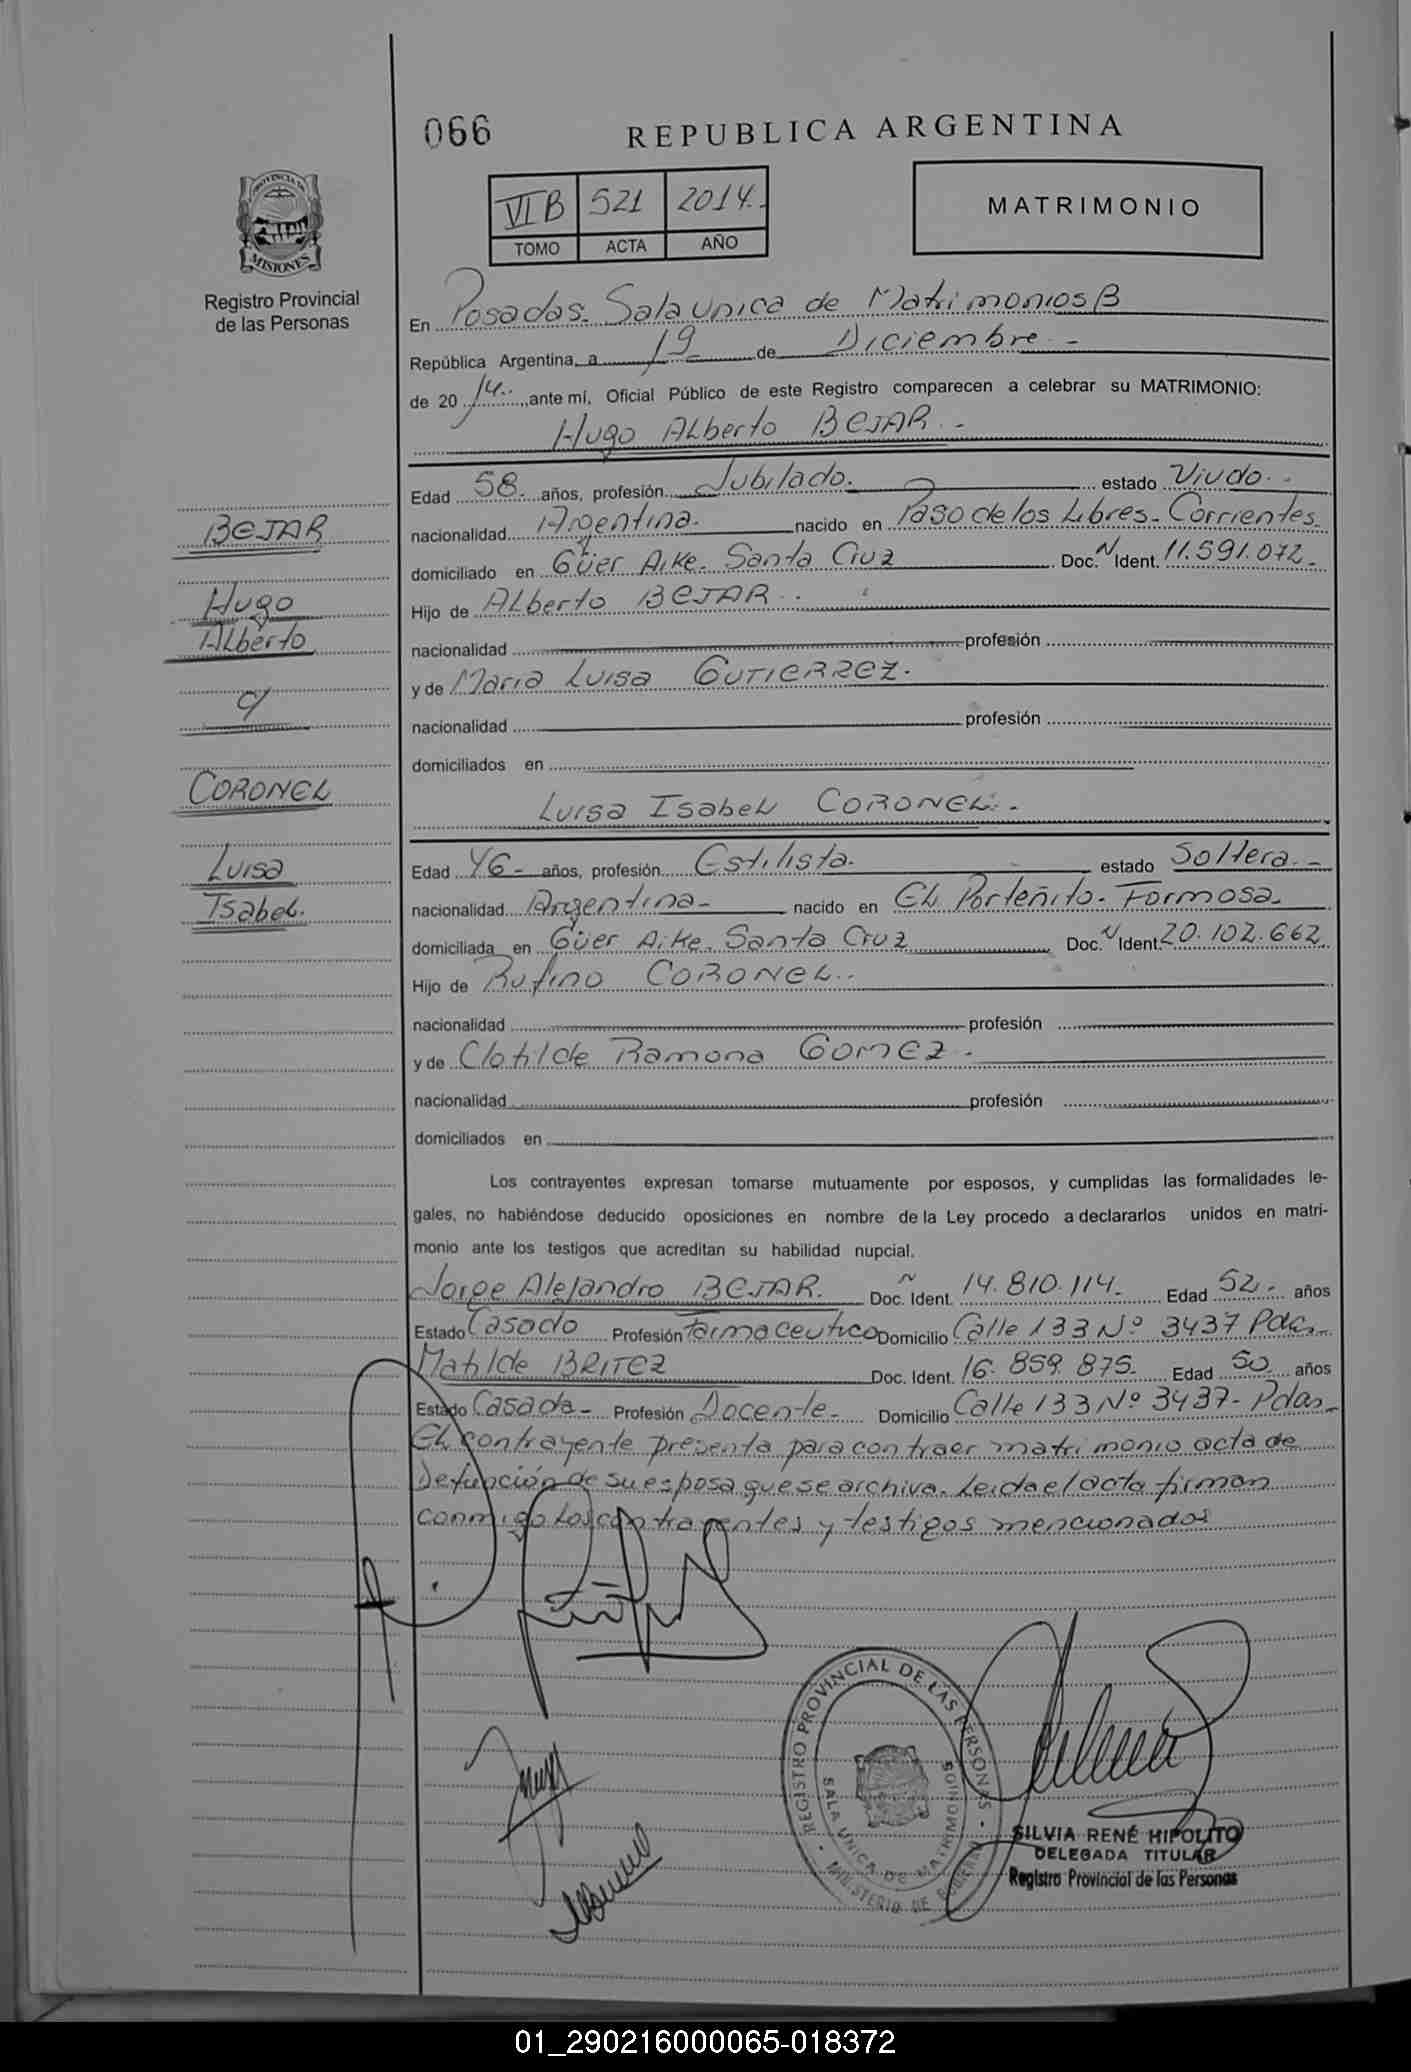 066 REPUBLICA ARGENTINA
VI B 521 2014.-
TOMO ACTA AÑO
MATRIMONIO
PROVINCIA DE
MISIONES
Registro Provincial
de las Personas
En Posadas. Sala Unica de Matrimonios B
República Argentina, a 19 de Diciembre.-
de 2014.- ,ante mí, Oficial Público de este Registro comparecen a celebrar su MATRIMONIO:
Hugo Alberto BEJAR.-
Edad 58.- años, profesión Jubilado. estado Viudo.-
nacionalidad Argentina. nacido en Paso de los Libres. Corrientes.
domiciliado en Güer Aike. Santa Cruz Doc. N Ident. 11.591.072.-
Hijo de Alberto BEJAR.-
nacionalidad profesión
y de Maria Luisa GUTIERREZ.
nacionalidad profesión
domiciliados en
Luisa Isabel CORONEL.-
Edad 46- años, profesión Estilista. estado Soltera.-
nacionalidad Argentina- nacido en EL Porteñito. Formosa.
domiciliada en Güer Aike. Santa Cruz Doc. N Ident. 20.102.662.
Hijo de Rufino CORONEL.-
nacionalidad profesión
y de Clotilde Ramona GOMEZ.-
nacionalidad profesión
domiciliados en
BEJAR
Hugo
Alberto
c/
CORONEL
Luisa
Isabel.
Los contrayentes expresan tomarse mutuamente por esposos, y cumplidas las formalidades le-
gales, no habiéndose deducido oposiciones en nombre de la Ley procedo a declararlos unidos en matri-
monio ante los testigos que acreditan su habilidad nupcial.
Jorge Alejandro BEJAR. Doc. Ident. 14.810.114.- Edad 52.- años
Estado Casado Profesión Farmaceutico Domicilio Calle 133 Nº 3437 Pdas.-
Matilde BRITEZ Doc. Ident. 16.859.875.- Edad 50 años
Estado Casada- Profesión Docente- Domicilio Calle 133 Nº 3437- Pdas-
EL contrayente presenta para contraer matrimonio acta de
Defunción de su esposa que se archiva. Leida el acta firman
conmigo los contrayentes y testigos mencionados
REGISTRO PROVINCIAL DE LAS PERSONAS
SALA UNICA DE MATRIMONIOS
MINISTERIO DE GOBIERNO
SILVIA RENÉ HIPOLITO
DELEGADA TITULAR
Registro Provincial de las Personas
01_290216000065-018372